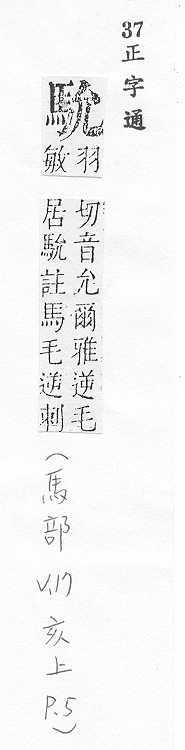 37正字通
馻
羽敏
切音允爾雅逆毛
居馻註馬毛逆刺
（馬部 V.17 亥上 P.5）